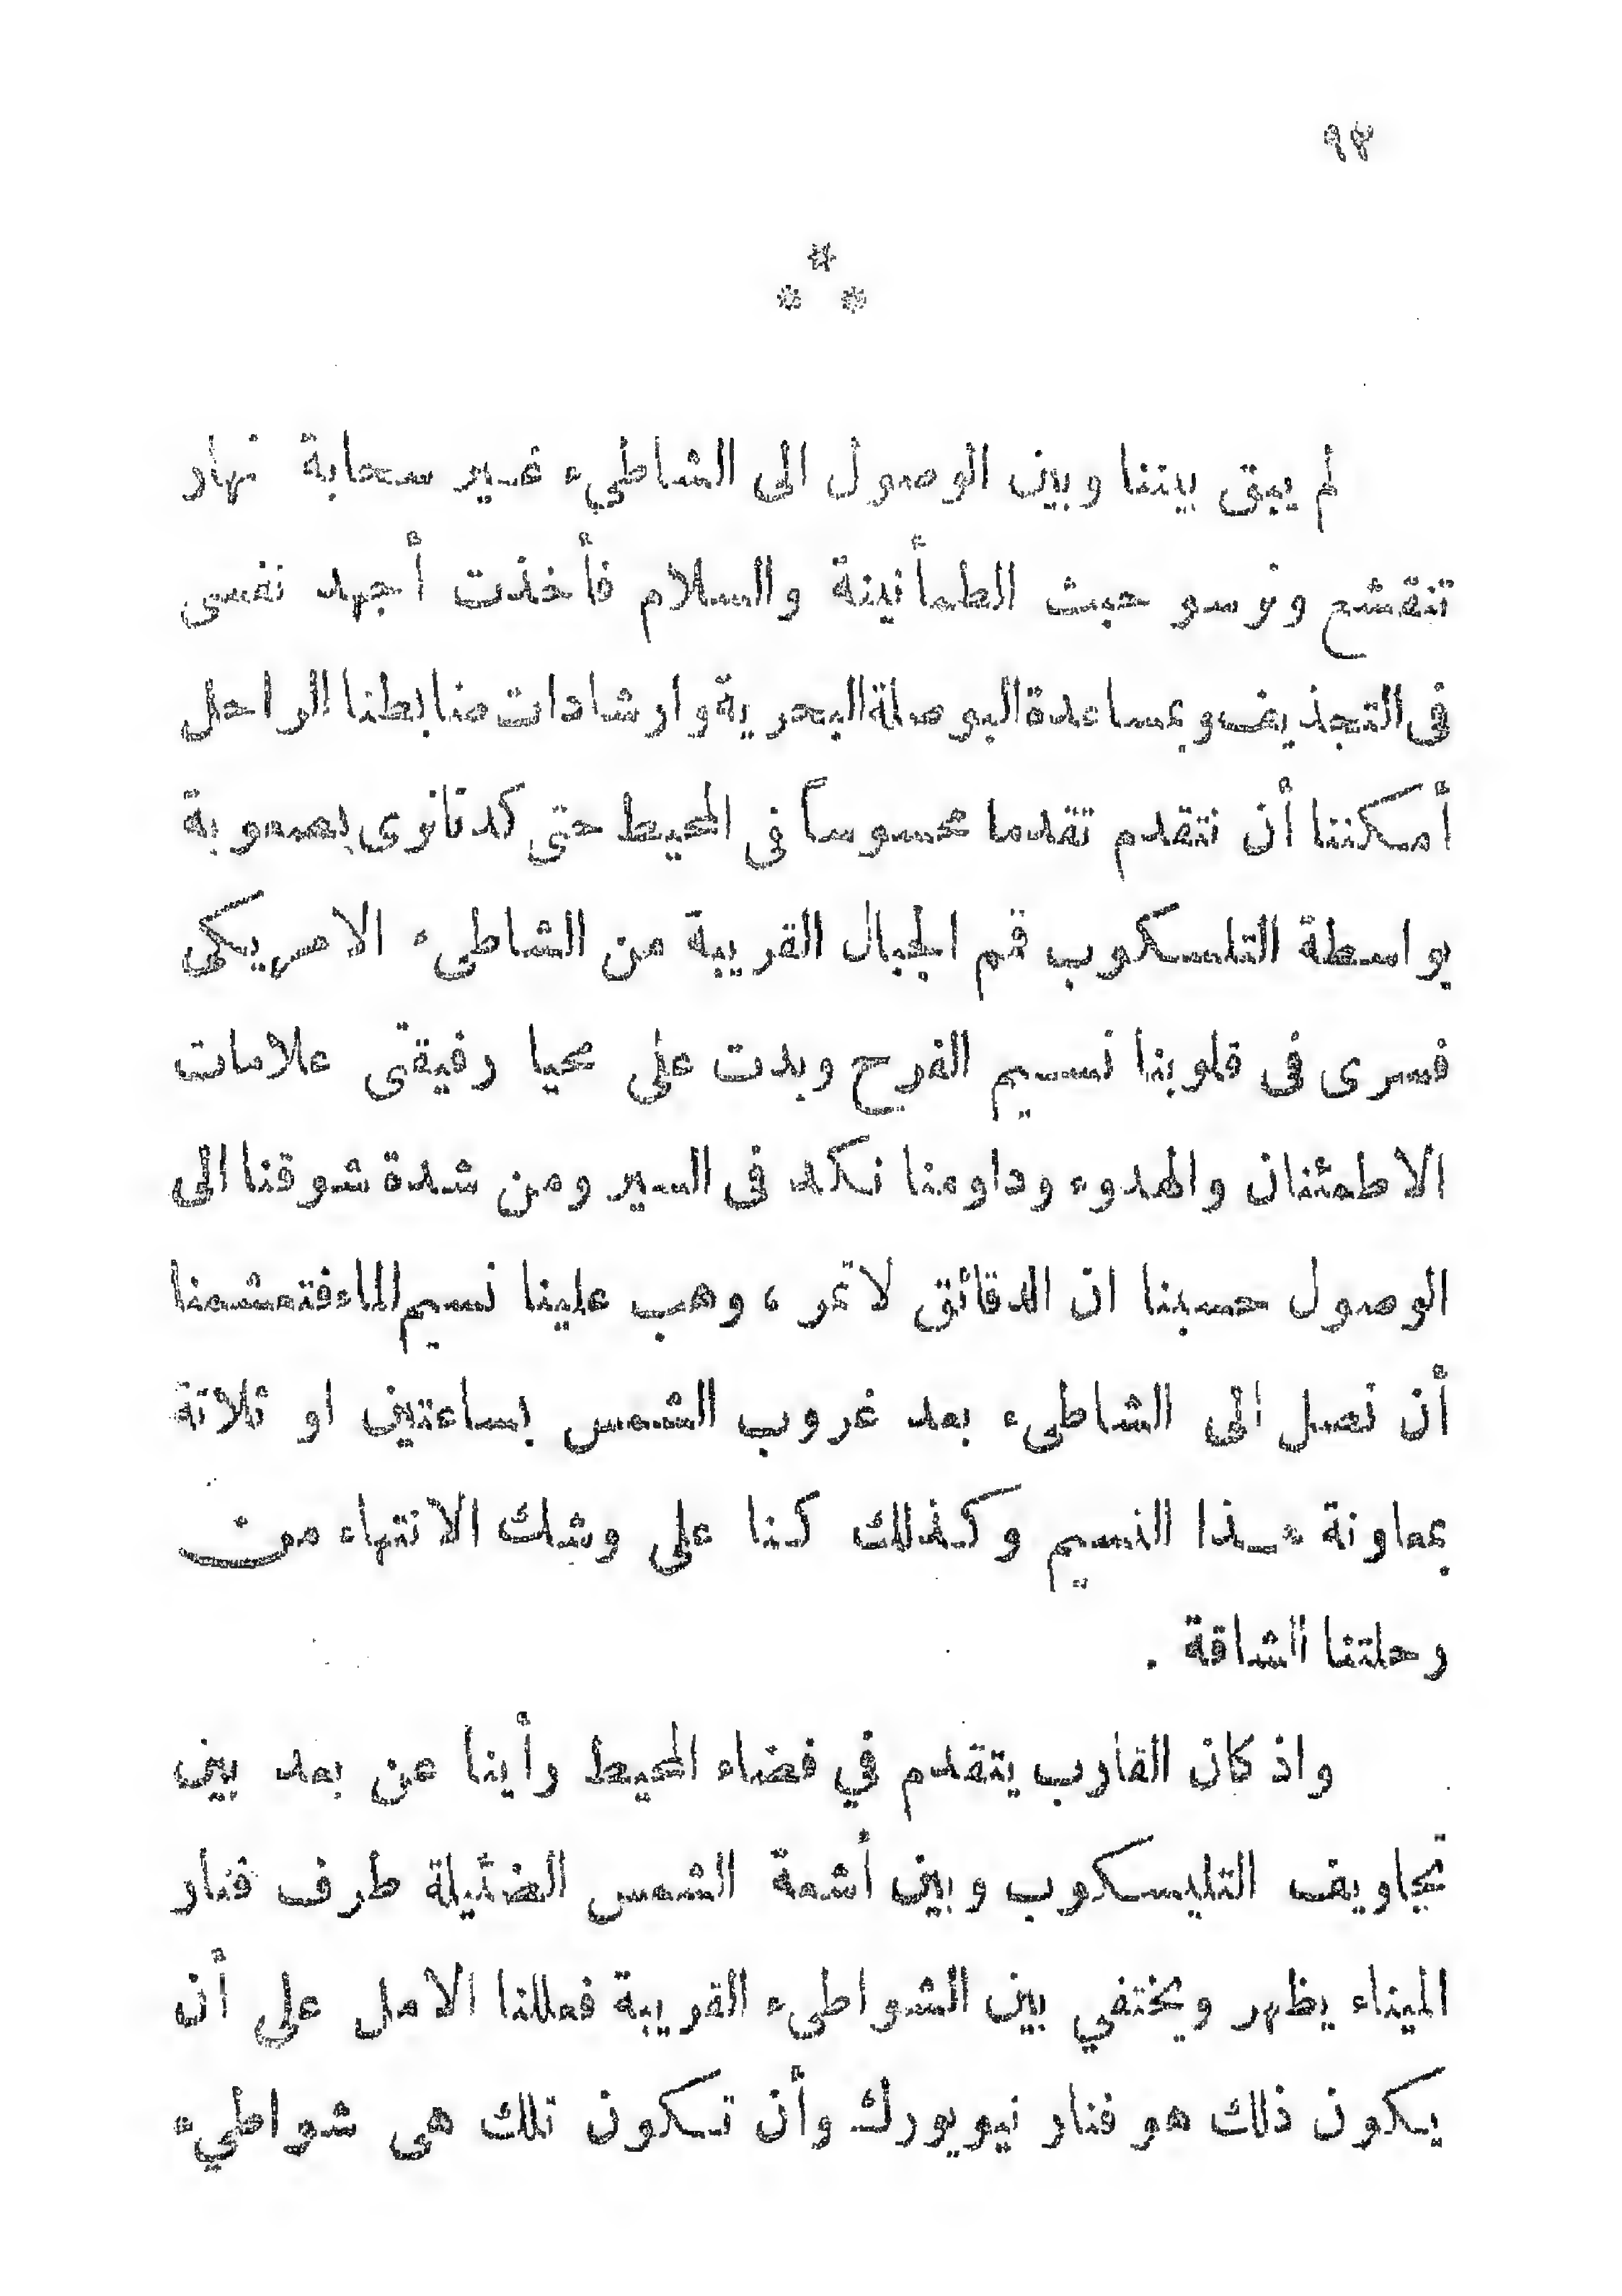 ٩٤
*
* *
لم يبق بيننا وبين الوصول الى الشاطيء غير سحابة نهار
تنقشع ونرسو حيث الطمأنينة والسلام فأخذت أجهد نفسى
فى التجذيف وبمساعدة البوصلة البحرية وارشادات ضابطنا الراحل
أمكننا أن نتقدم تقدما محسوساً فى المحيط حتى كدنا نرى بصعوبة
بواسطة التلسكوب قمم الجبال القريبة من الشاطىء الامريكى
فسرى فى قلوبنا نسيم الفرح وبدت على محيا رفيقتى علامات
الاطمئنان والهدوء وداومنا نكد فى السير ومن شدة شوقنا الى
الوصول حسبنا ان الدقائق لا تمر ، وهب علينا نسيم الماء فتعشمنا
أن نصل الى الشاطىء بعد غروب الشمس بساعتين او ثلاثة
بمعاونة هذا النسيم وكذلك كنا على وشك الانتهاء من
رحلتنا الشاقة .
واذ كان القارب يتقدم في فضاء المحيط رأينا عن بعد بين
تجاويف التليسكوب وبين أشعة الشمس الضئيلة طرف فنار
الميناء يظهر ويختفي بين الشواطىء القريبة فعللنا الامل على أن
يكون ذلك هو فنار نيويورك وأن تكون تلك هى شواطيء